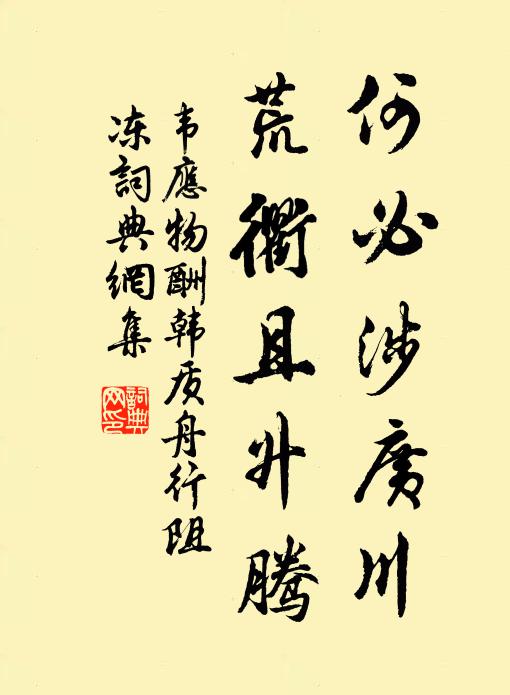 何必涉廣川
荒衢且升騰
韦應物酬韩质舟行阻
冻詞典網集
詞典網印